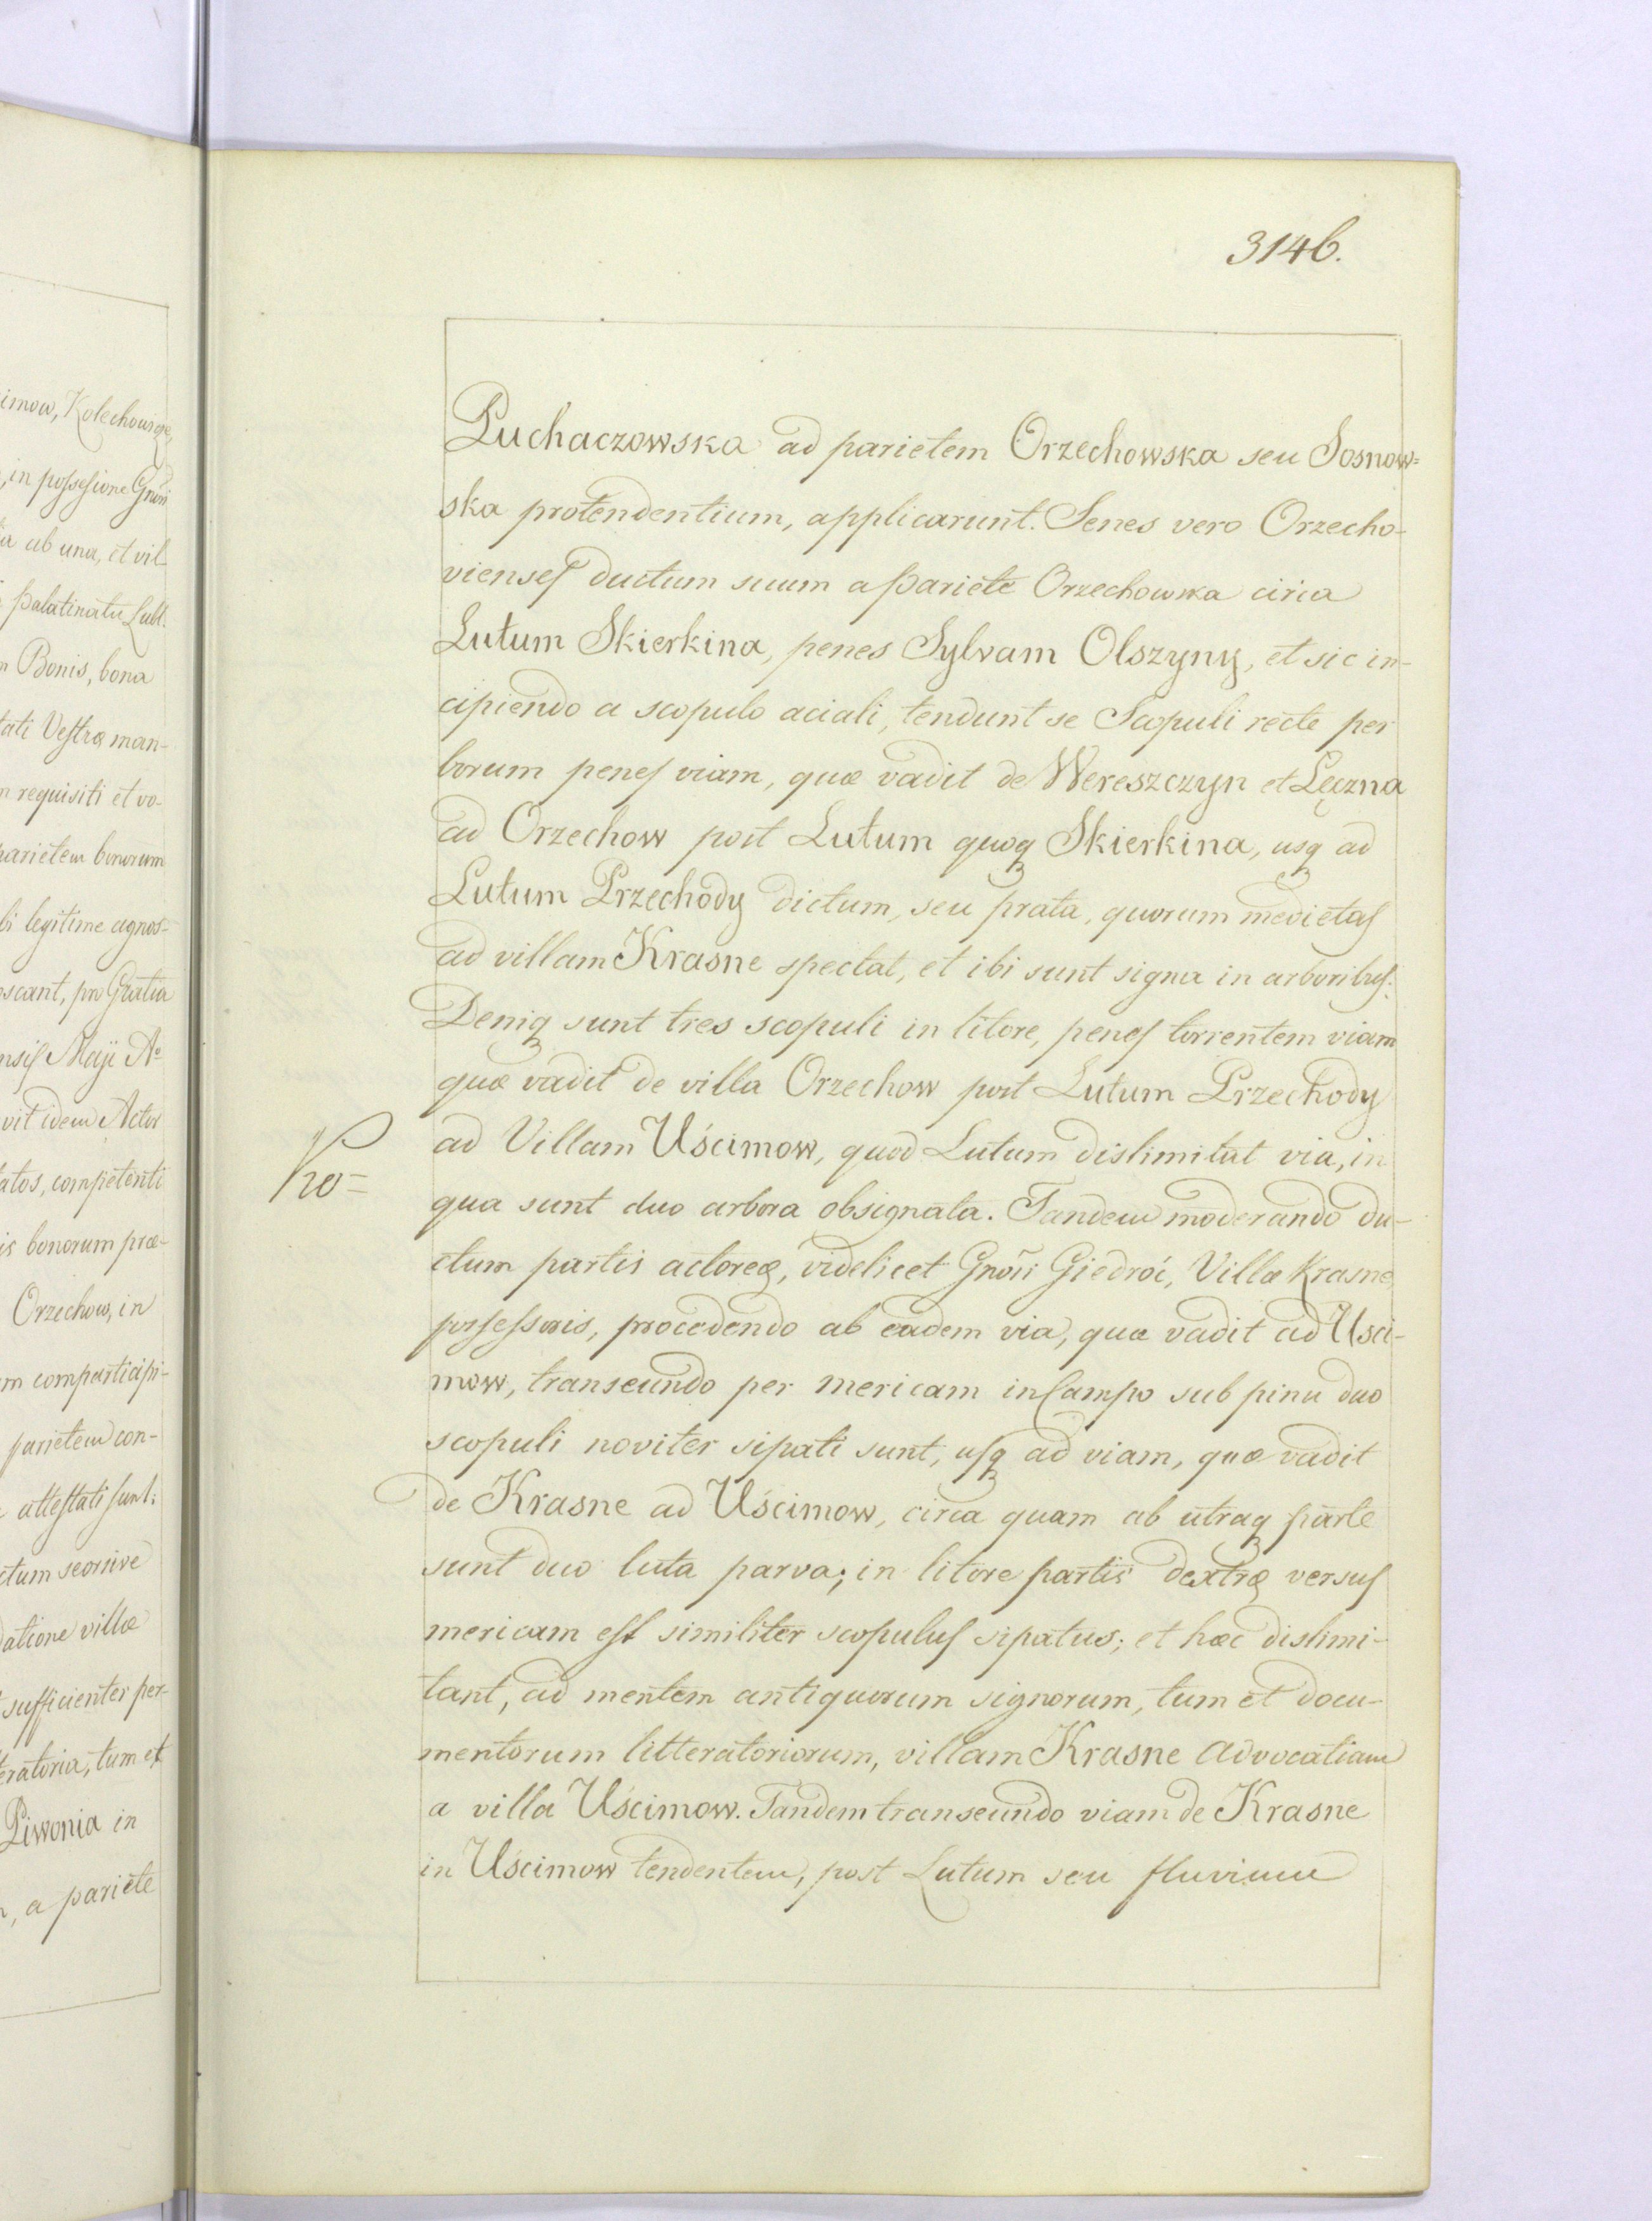 3146.
Puchaczowska ad parietem Orzechowska seu Sosnow=
ska protendentium, applicarunt. Senes vero Orzecho-
vienses ductum suum a pariete Orzechowska circa
Lutum Skierkina, penes Sylvam Olszyny, et sic in-
cipiendo a scopulo aciali, tendunt se Scopuli recte per
borum penes viam, quæ vadit de Wereszczyn et Lęczna
ad Orzechow post Lutum quoq Skierkina, usq ad
Lutum Przechody dictum, seu prata, quorum medietas
ad villam Krasne spectat, et ibi sunt signa in arboribus:
Deniq sunt tres scopuli in litore, penes torrentem viam
quæ vadit de villa Orzechow post Lutum Przechody
ad Villam Uścimow, quod Lutum dislimitat via, in
qua sunt duo arbora obsignata. Tandem moderando du-
ctum partis actoreæ, videlicet Gnōsi Giedróć, Villæ Krasne
possessoris, procedendo ab eadem via, quæ vadit ad Usci-
mow, transeundo per mericam in Campo sub pinu duo
scopuli noviter sipati sunt, usq ad viam, quæ vadit
de Krasne ad Uścimow, circa quam ab utraq parte
sunt duo luta parva; in litore partis dextræ versus
mericam est similiter scopulus sipatus; et hæc dislimi-
tant, ad mentem antiquorum signorum, tum et docu-
mentorum litteratoriorum, villam Krasne advocatiam
a villa Uścimow. Tandem transeundo viam de Krasne
in Uścimow tendentem, post Lutum seu fluvium
imow, Kolechowice,
, in possesione Gnōsi
a ab una, et vil-
Palatinatu Lubl.
Bonis, bona
tati Vestræ man-
n requisiti et vo-
parietem bonorum
li legitime agnos-
oscant, pro Gratia
nsis Maji Aº
vit idem Actor
atos, competenti
is bonorum præ-
Orzechow, in
m comparticipi-
parietem con-
attestati sunt:
ctum seorsive
datione villæ
sufficienter per-
eratoria, tum et
Piwonia in
, a pariete